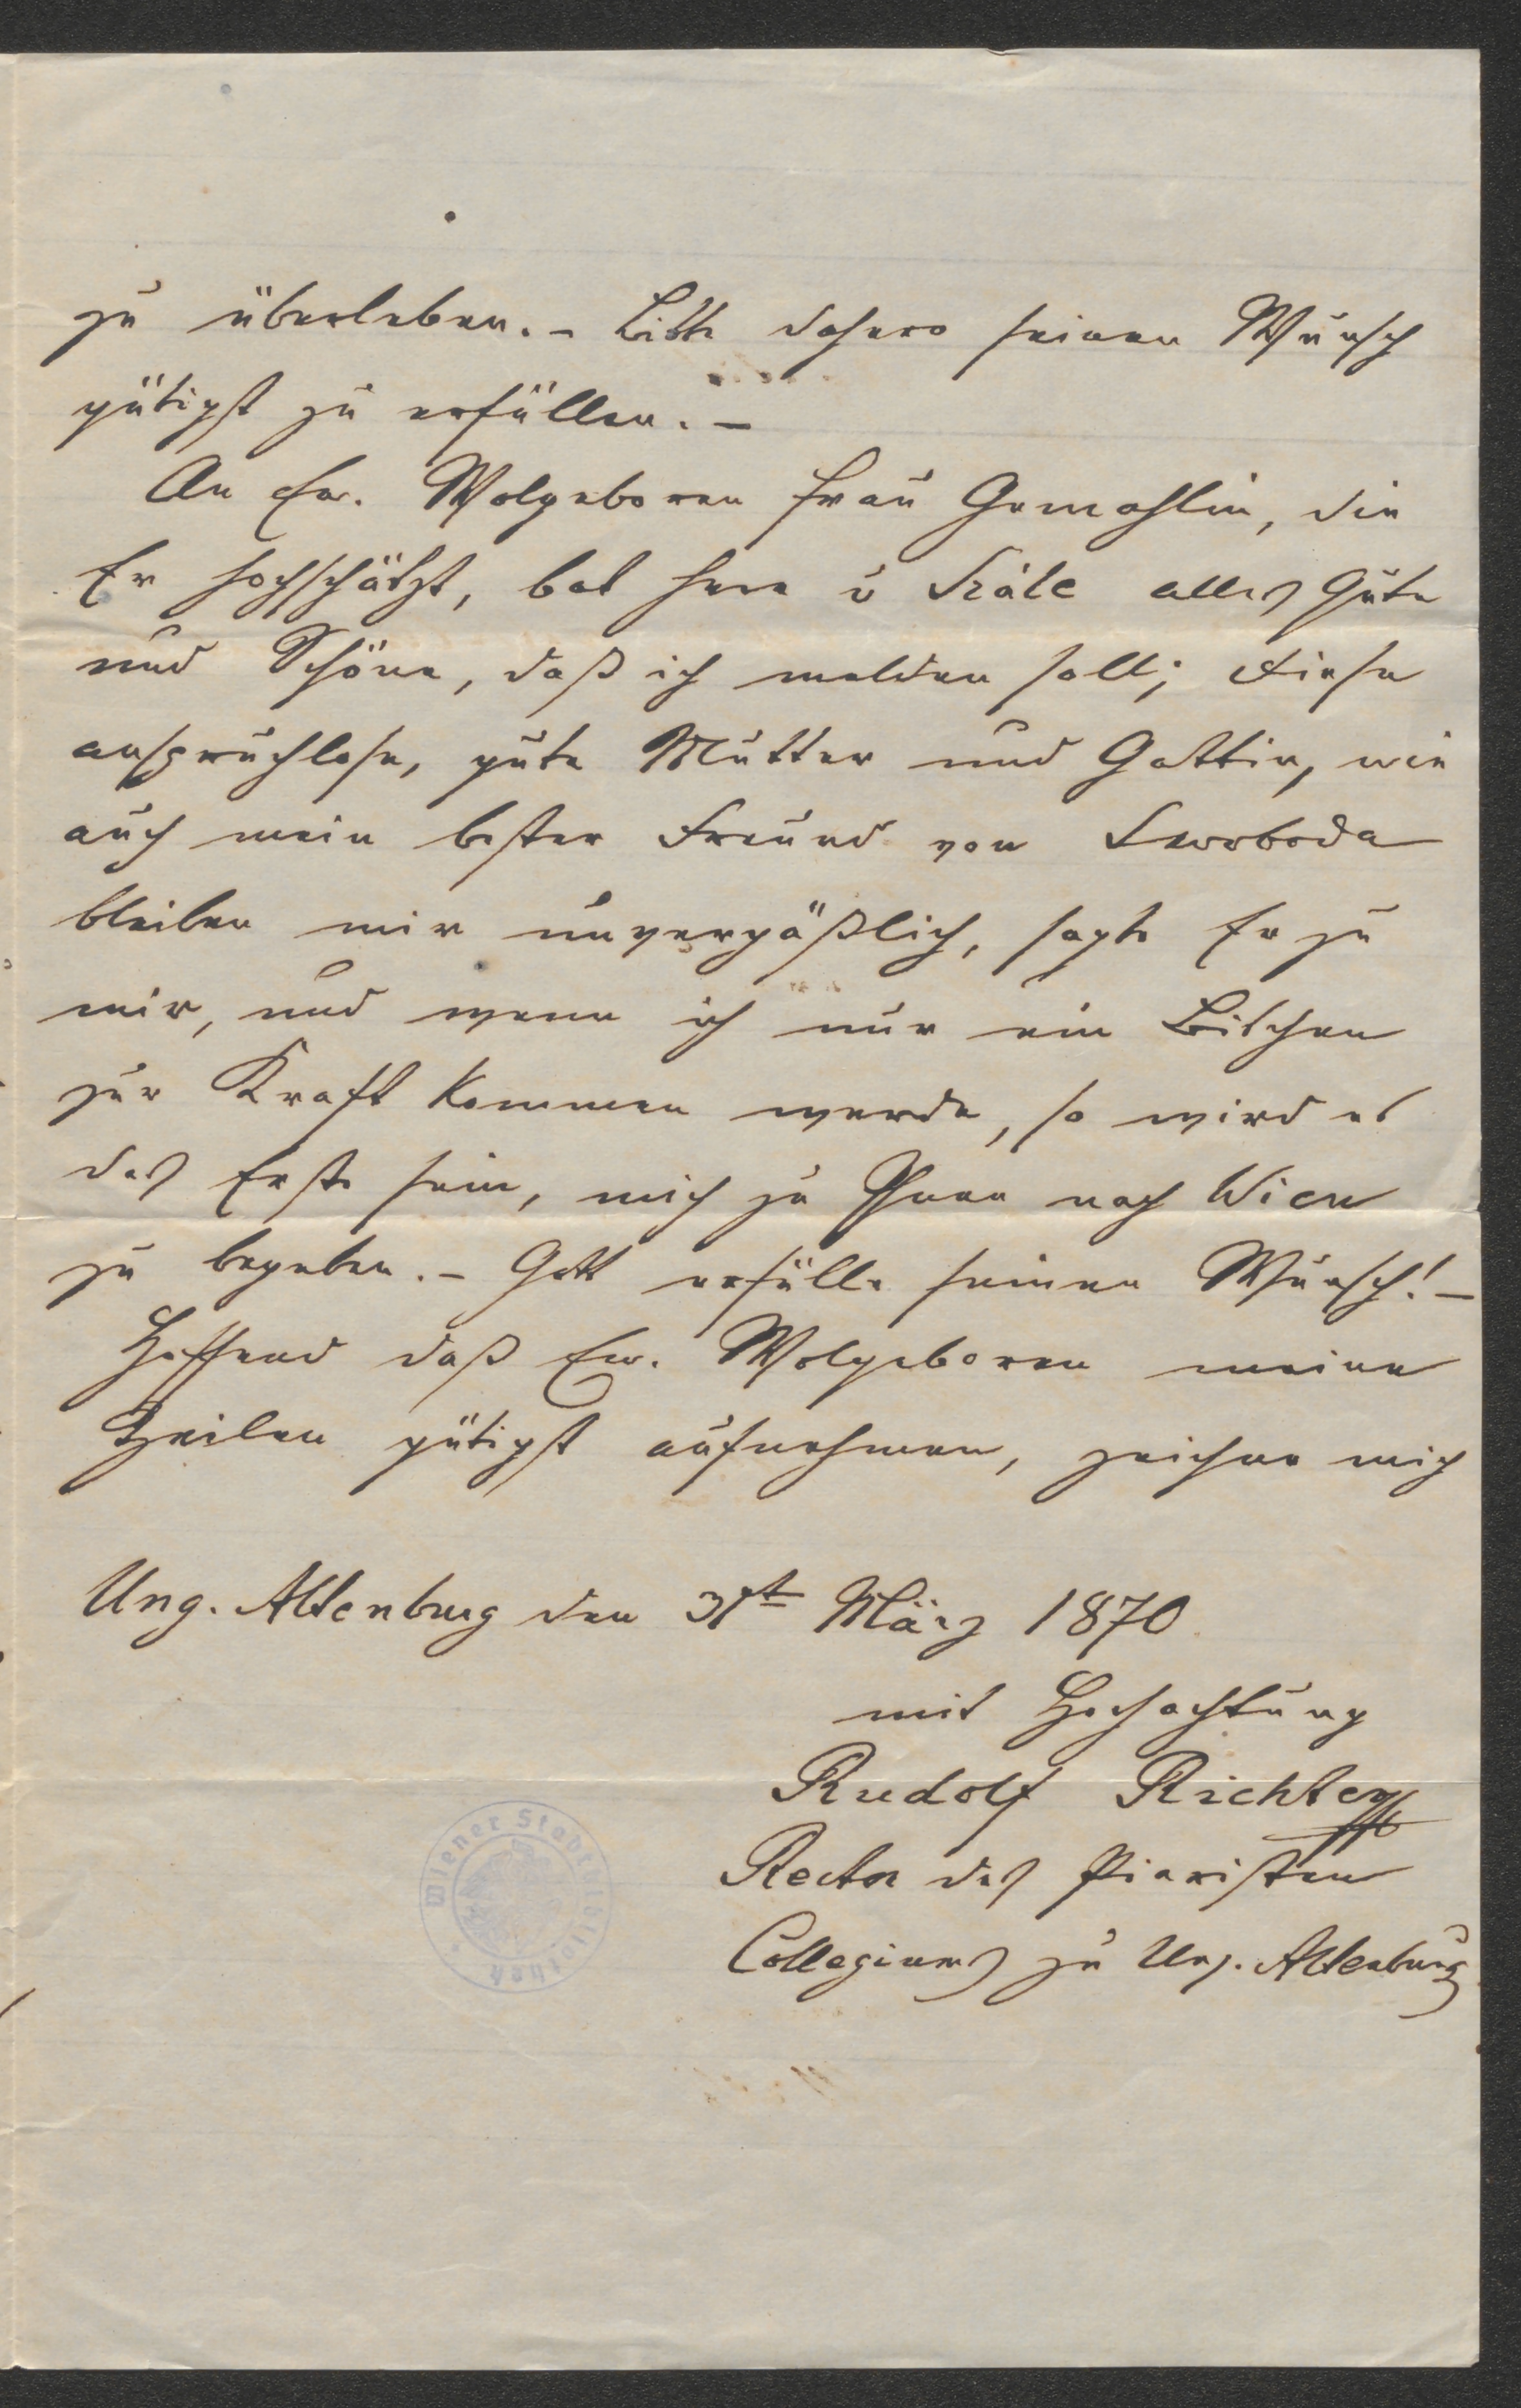 zu überleben. – Bitte dahero seinen Wunsch
gütigst zu erfüllen. –
An Ew. Wolgeboren Frau Gemahlin, die
Er hochschätzt, bat Herr v Szále alles Gute
und Schöne, daß ich melden soll; diese
anspruchlose, gute Mutter und Gattin, wie
auch mein bester Freund von Swoboda
bleiben mir unvergäßlich, sagte Er zu
mir, und wenn ich nur ein Bischen
zur Kraft kommen werde, so wird es
das Erste sein, mich zu Ihnen nach Wien
zu begeben. – Gott erfülle seinen Wunsch! –
Hoffend daß Ew. Wolgeboren meine
Zeilen gütigst aufnehmen, zeichne mich
Ung. Altenburg den 31t März 1870
mit Hochachtung
Rudolf Richter
Rector des Piaristen
Collegiums zu Ung. Altenburg
Wiener Stadtbibliothek